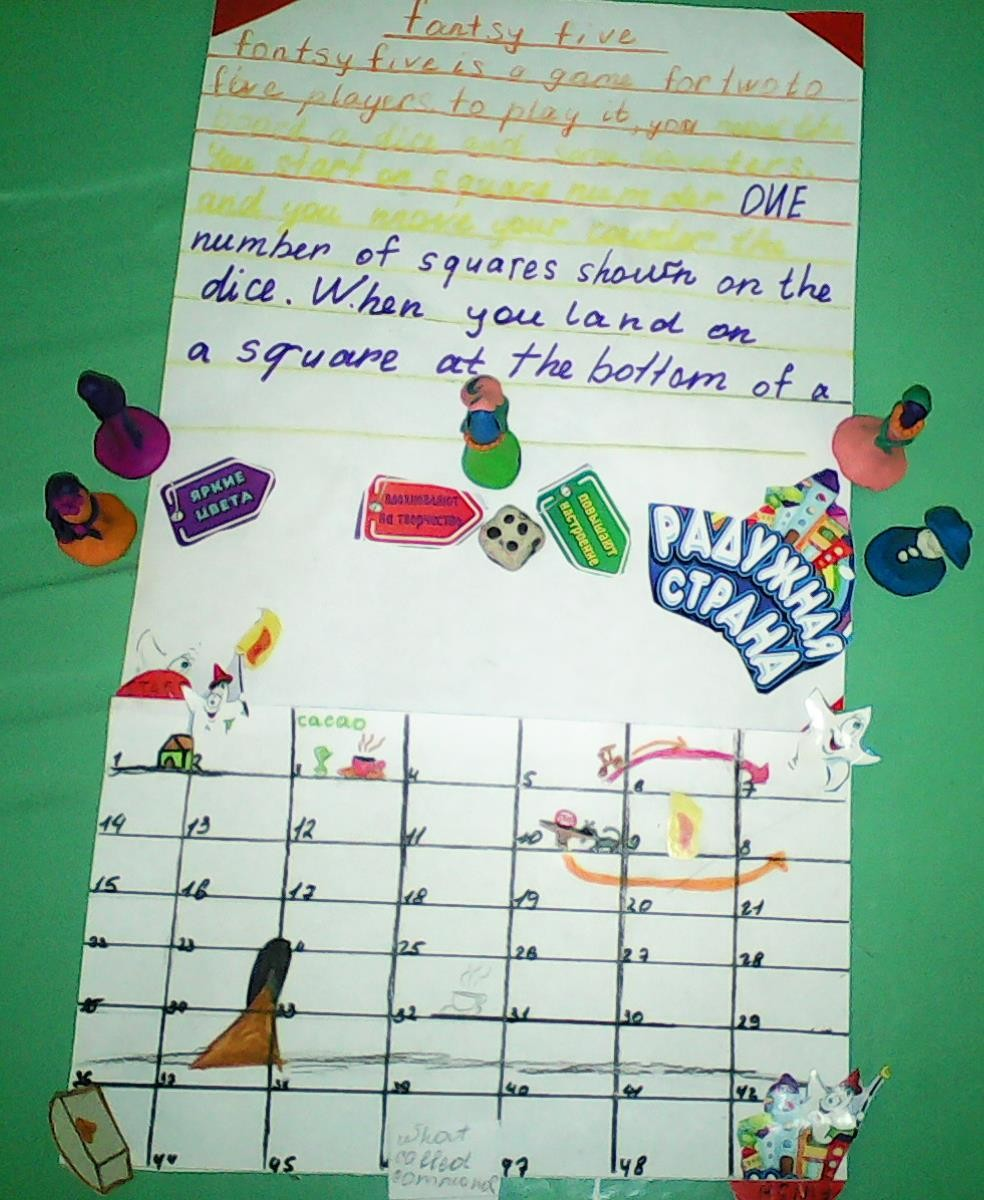 fantsy five
fontsy five is a game for two to
five players to play it, you need the
board a dice and some counters.
You start on square number ONE
and you move your counter the
number of squares shown on the
dice. When you land on
a square at the bottom of a
ЯРКИЕ
ЦВЕТА
вдохновляют
на творчество
ПОВЫШАЮТ
настроение
РАДУЖНАЯ
СТРАНА
cacao
1 2 3 4 5 6 7
14 13 12 11 10 9 8
15 16 17 18 19 20 21
22 23 25 26 27 28
33 32 31 30 29
36 37 38 39 40 41 42
44 45 47 48
what
called
command